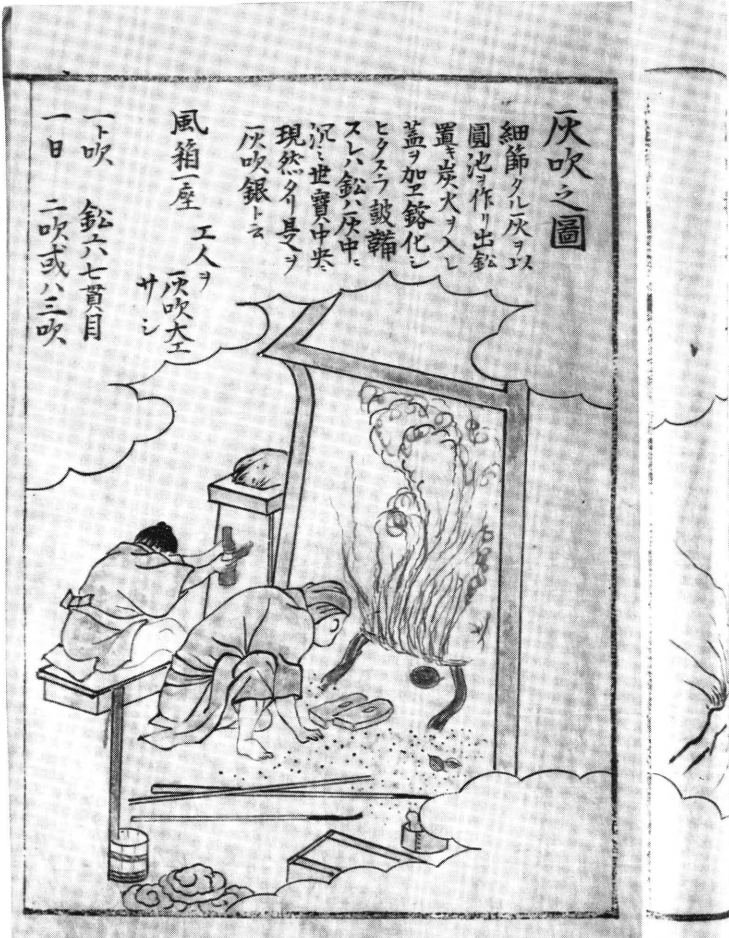 灰吹之圖
細篩タル灰ヲ以
圓池ヲ作リ出鉛
置キ炭火ヲ入レ
蓋ヲ加ヱ鎔化シ
ヒタスラ鼓鞴
スレハ鉛ハ灰中ニ
沉ミ世寶中央ニ
現然タリ是ヲ
灰吹銀ト云
風箱一座
工人ヲ
灰吹大工
サシ
一ト吹 鉛六七貫目
一日 二吹或ハ三吹